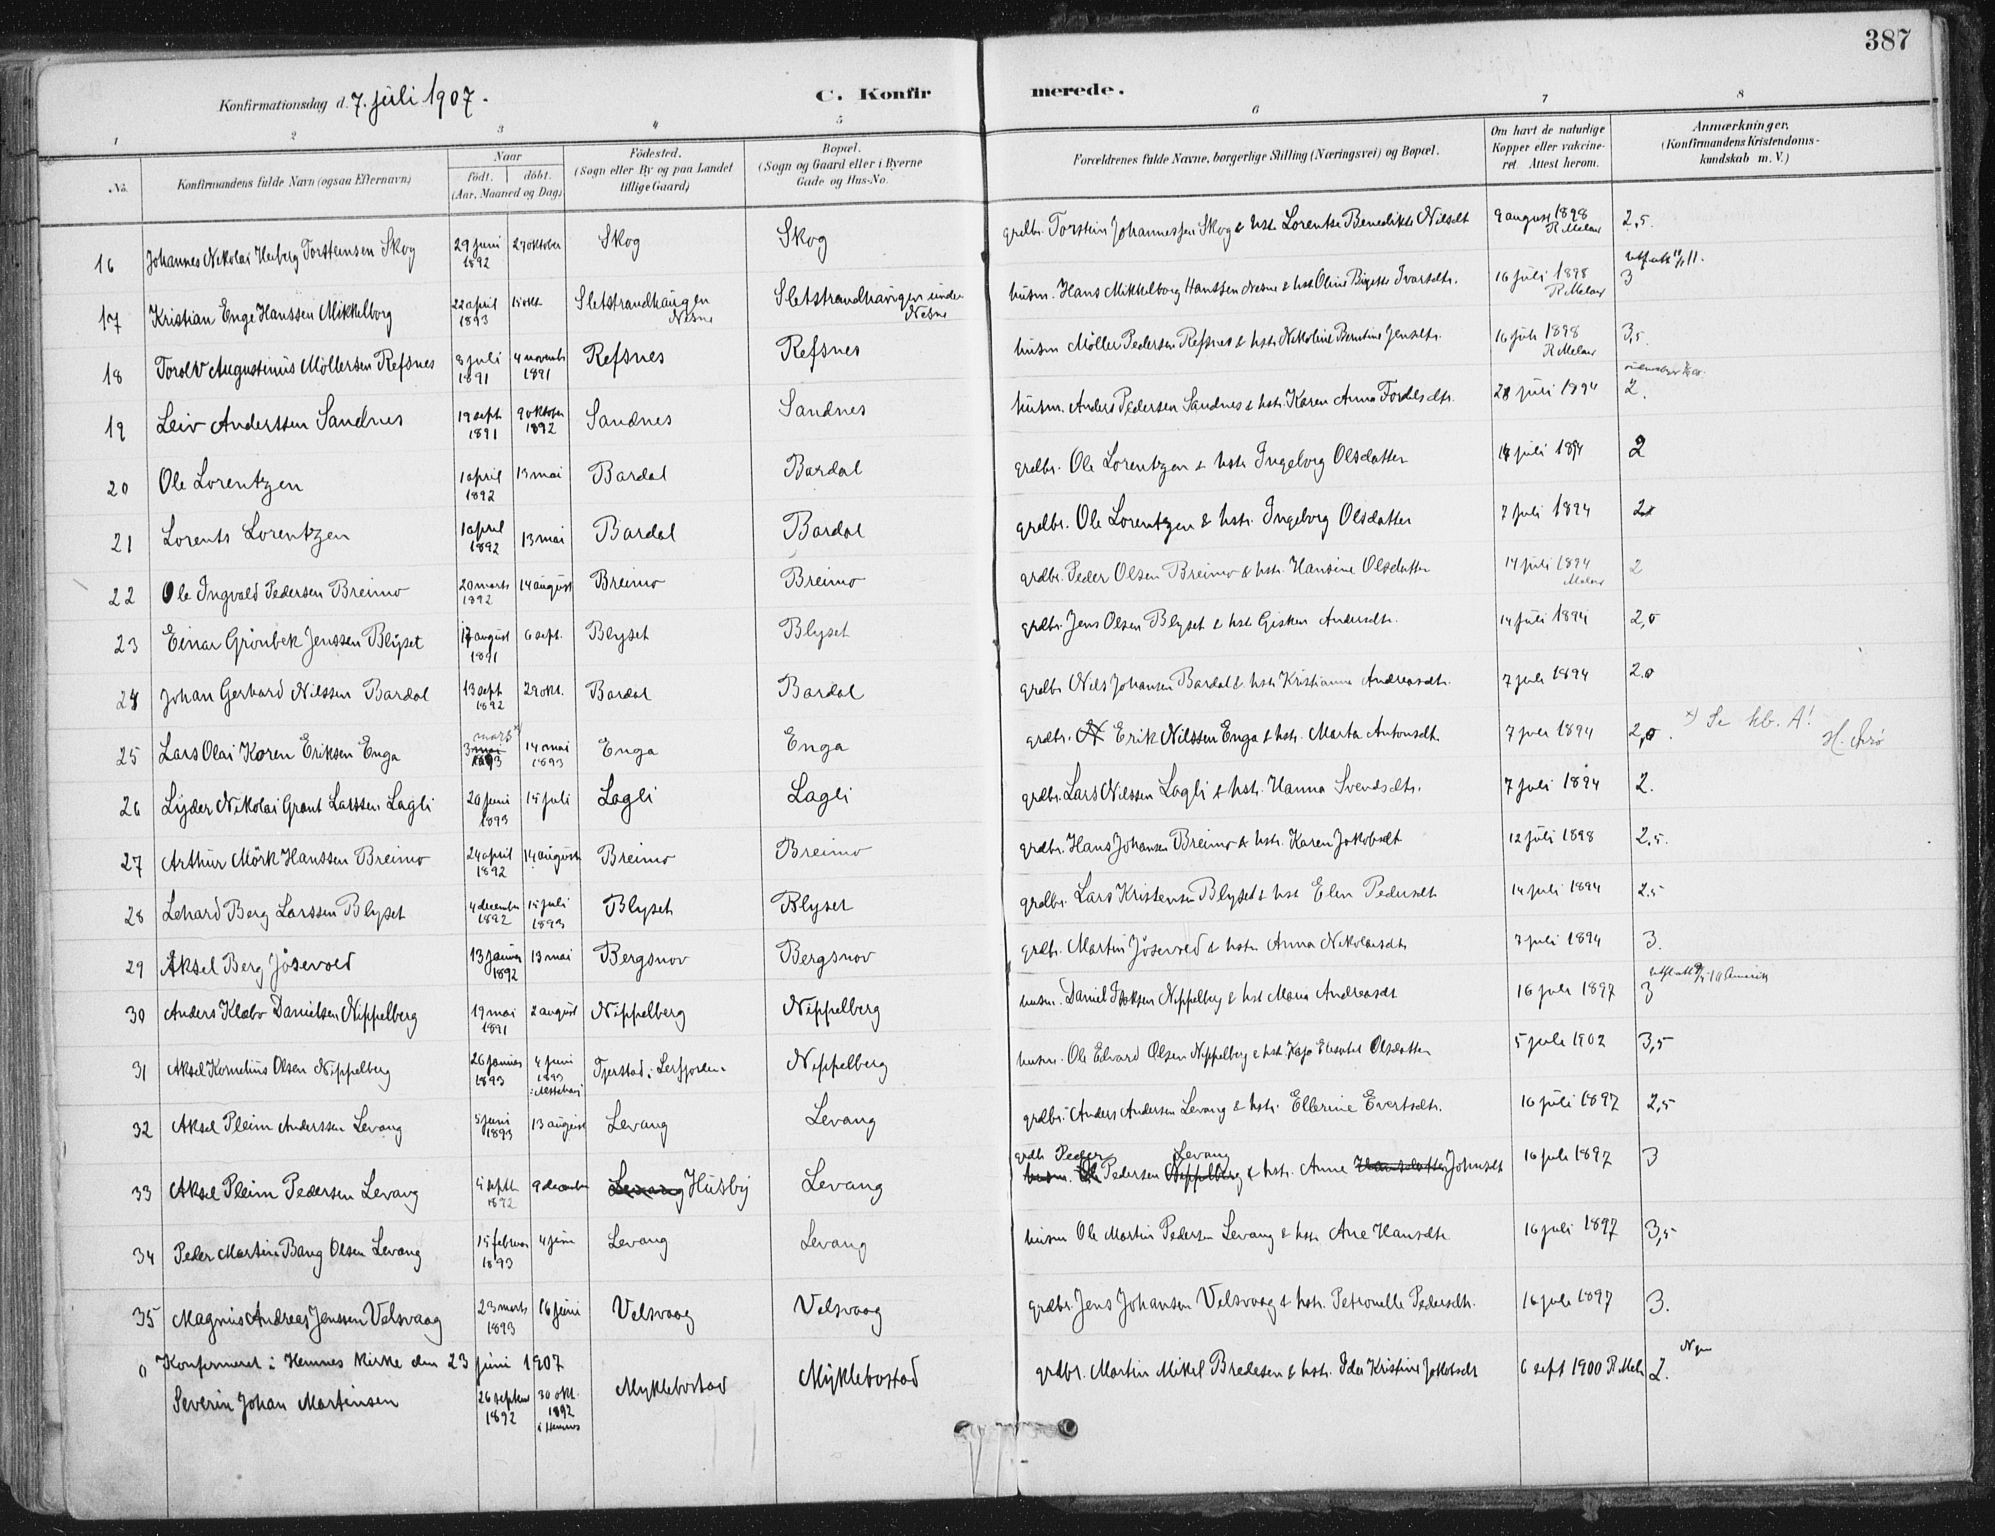 387
Konfirmationsdag d. 7. juli 1907.
C. Konfirmerede.
1 2 3 4 5 6 7 8
No. Konfirmandens fulde Navn (ogsaa Efternavn) Naar födt. döbt. (Aar, Maaned og Dag) Födested. (Sogn eller By og paa Landet tillige Gaard) Bopæl. (Sogn og Gaard eller i Byerne Gade og Hus-No. Forældrenes fulde Navne, borgerlige Stilling (Næringsvei) og Bopæl. Om havt de naturlige Kopper eller vakcineret. Attest herom. Anmærkninger. (Konfirmandens Kristendomskundskab m. V.)
16 Johannes Nikolai Heiberg Torsteinsen Skog 29 juni 1892 27 oktober Skog Skog grdbr. Torstein Johannessen Skog & hstr. Lorentse Benedikte Nilsdt 9 august 1898 2,5.
17 Kristian Enge Hanssen Mikkelborg 22 april 1893 15 okt. Sletstrandhaugen Nesne Sletstrandhaugen under Nesne husm. Hans Mikkelborg Hanssen Nesne & hst Oline Birgitte Ivarsdtr. 16 juli 1898 3
18 Torolv Augustinus Möllersen Refsnes 8 juli 1891 4 novemb 1891 Refsnes Refsnes husm Möller Pedersen Refsnes & hstr. Nikoline Berntine Jensdtr. 16 juli 1898 3,5.
19 Leiv Anderssen Sandnes 19 sept 1891 9 oktober 1892 Sandnes Sandnes husm. Anders Pedersen Sandnes & hstr. Karen Anna Fordelsdtr. 28 juli 1894 2.
20 Ole Lorentzen 1 april 1892 13 mai Bardal Bardal grdbr. Ole Lorentzen & hstr. Ingeborg Olsdatter juli 1894 2
21 Lorents Lorentzen 1 april 1892 13 mai Bardal Bardal grdbr. Ole Lorentzen & hstr. Ingeborg Olsdatter 7 juli 1894 2
22 Ole Ingvald Pedersen Breimo 20 marts 1892 14 august Breimo Breimo grdbr. Peder Olsen Breimo & hstr. Hansine Olsdatter 14 juli 1894 2
23 Einar Grönbek Jenssen Blyset 17 august 1891 6 sept. Blyset Blyset grdbr. Jens Olsen Blyset & hst Gisken Andersdtr. 14 juli 1894 2,0
24 Johan Gerhard Nilssen Bardal 13 sept 1892 29 okt. Bardal Bardal grdbr Nils Johansen Bardal & hstr. Kristianne Andreasdtr. 7 juli 1894 2.0
25 Lars Olai Koren Eriksen Enga 3 mai mars x) 1893 14 mai 1893 Enga Enga grdbr. N Erik Nilssen Enga & hstr. Marta Antonsdt. 7 juli 1894 2,0. x) Se kb. A!
26 Lyder Nikolai Grant Larssen Lagli 20 juni 1893 15 juli Lagli Lagli grdbr. Lars Nilssen Lagli & hstr. Hanna Svendsdtr. 7 juli 1894 2.
27 Arthur Mörk Hanssen Breimo 24 april 1892 14 august Breimo Breimo grdbr. Hans Johansen Breimo & hstr. Karen Jakobsdt 12 juli 1898 2,5.
28 Lehard Berg Larssen Blyset 4 december 1892 15 juli 1893 Blyset Blyset grdbr. Lars Kristensen Blyset & hst Elen Pedersdt 14 juli 1894 2.5
29 Aksel Berg Jösevold 13 januar 1892 13 mai Bergsnov Bergsnov grdb. Martin Jösevold & hstr. Anna Nikolaisdtr. 7 juli 1894 3.
30 Anders Klæbo Danielsen Nippelberg 19 mai 1891 2 august Nippelberg Nippelberg husm. Daniel Isaksen Nippelberg & hst Maria Andreasdt 16 juli 1897 3
31 Aksel Kornelius Olsen Nippelberg 26 januar 1893 4 juni 1893 Tjerstad i Leirfjorden Nippelberg husm. Ole Edvard Olsen Nippelberg & hst. Kaja Elisabet Olsdatter 5 juli 1902 3,5
32 Aksel Pleim Anderssen Levang 5 juni 1893 13 august Levang Levang grdbr. Anders Andersen Levang & hstr. Ellerine Evertsdtr. 16 juli 1897 2,5
33 Aksel Pleim Pedersen Levang 5 sept 1892 9 december Levang Husby Levang husm. grdb Peder Pedersen Nippelberg Levang & hstr. Anne Hansdatter Johnsdt 16 juli 1897 3
34 Peder Martin Bang Olsen Levang 15 februar 1893 4 juni Levang Levang husm Ole Martin Pedersen Levang & hstr Ane Hansdtr 16 juli 1897 3,5
35 Magnus Andreas Jenssen Velsvaag 23 marts 1893 16 juni Velsvaag Velsvaag grdbr. Jens Johansen Velsvaag & hstr. Petronelle Pedersdtr. 16 juli 1897 3.
0 Konfirmeret i Hemnes kirke den 23 juni 1907
Severin Johan Martinsen 26 september 1892 30 okt. 1892 i Hemnes Myklebostad Myklebostad grdbr. Martin Mikal Bredesen & hstr. Ida Kristine Jakobsdt 6 sept 1900 2.